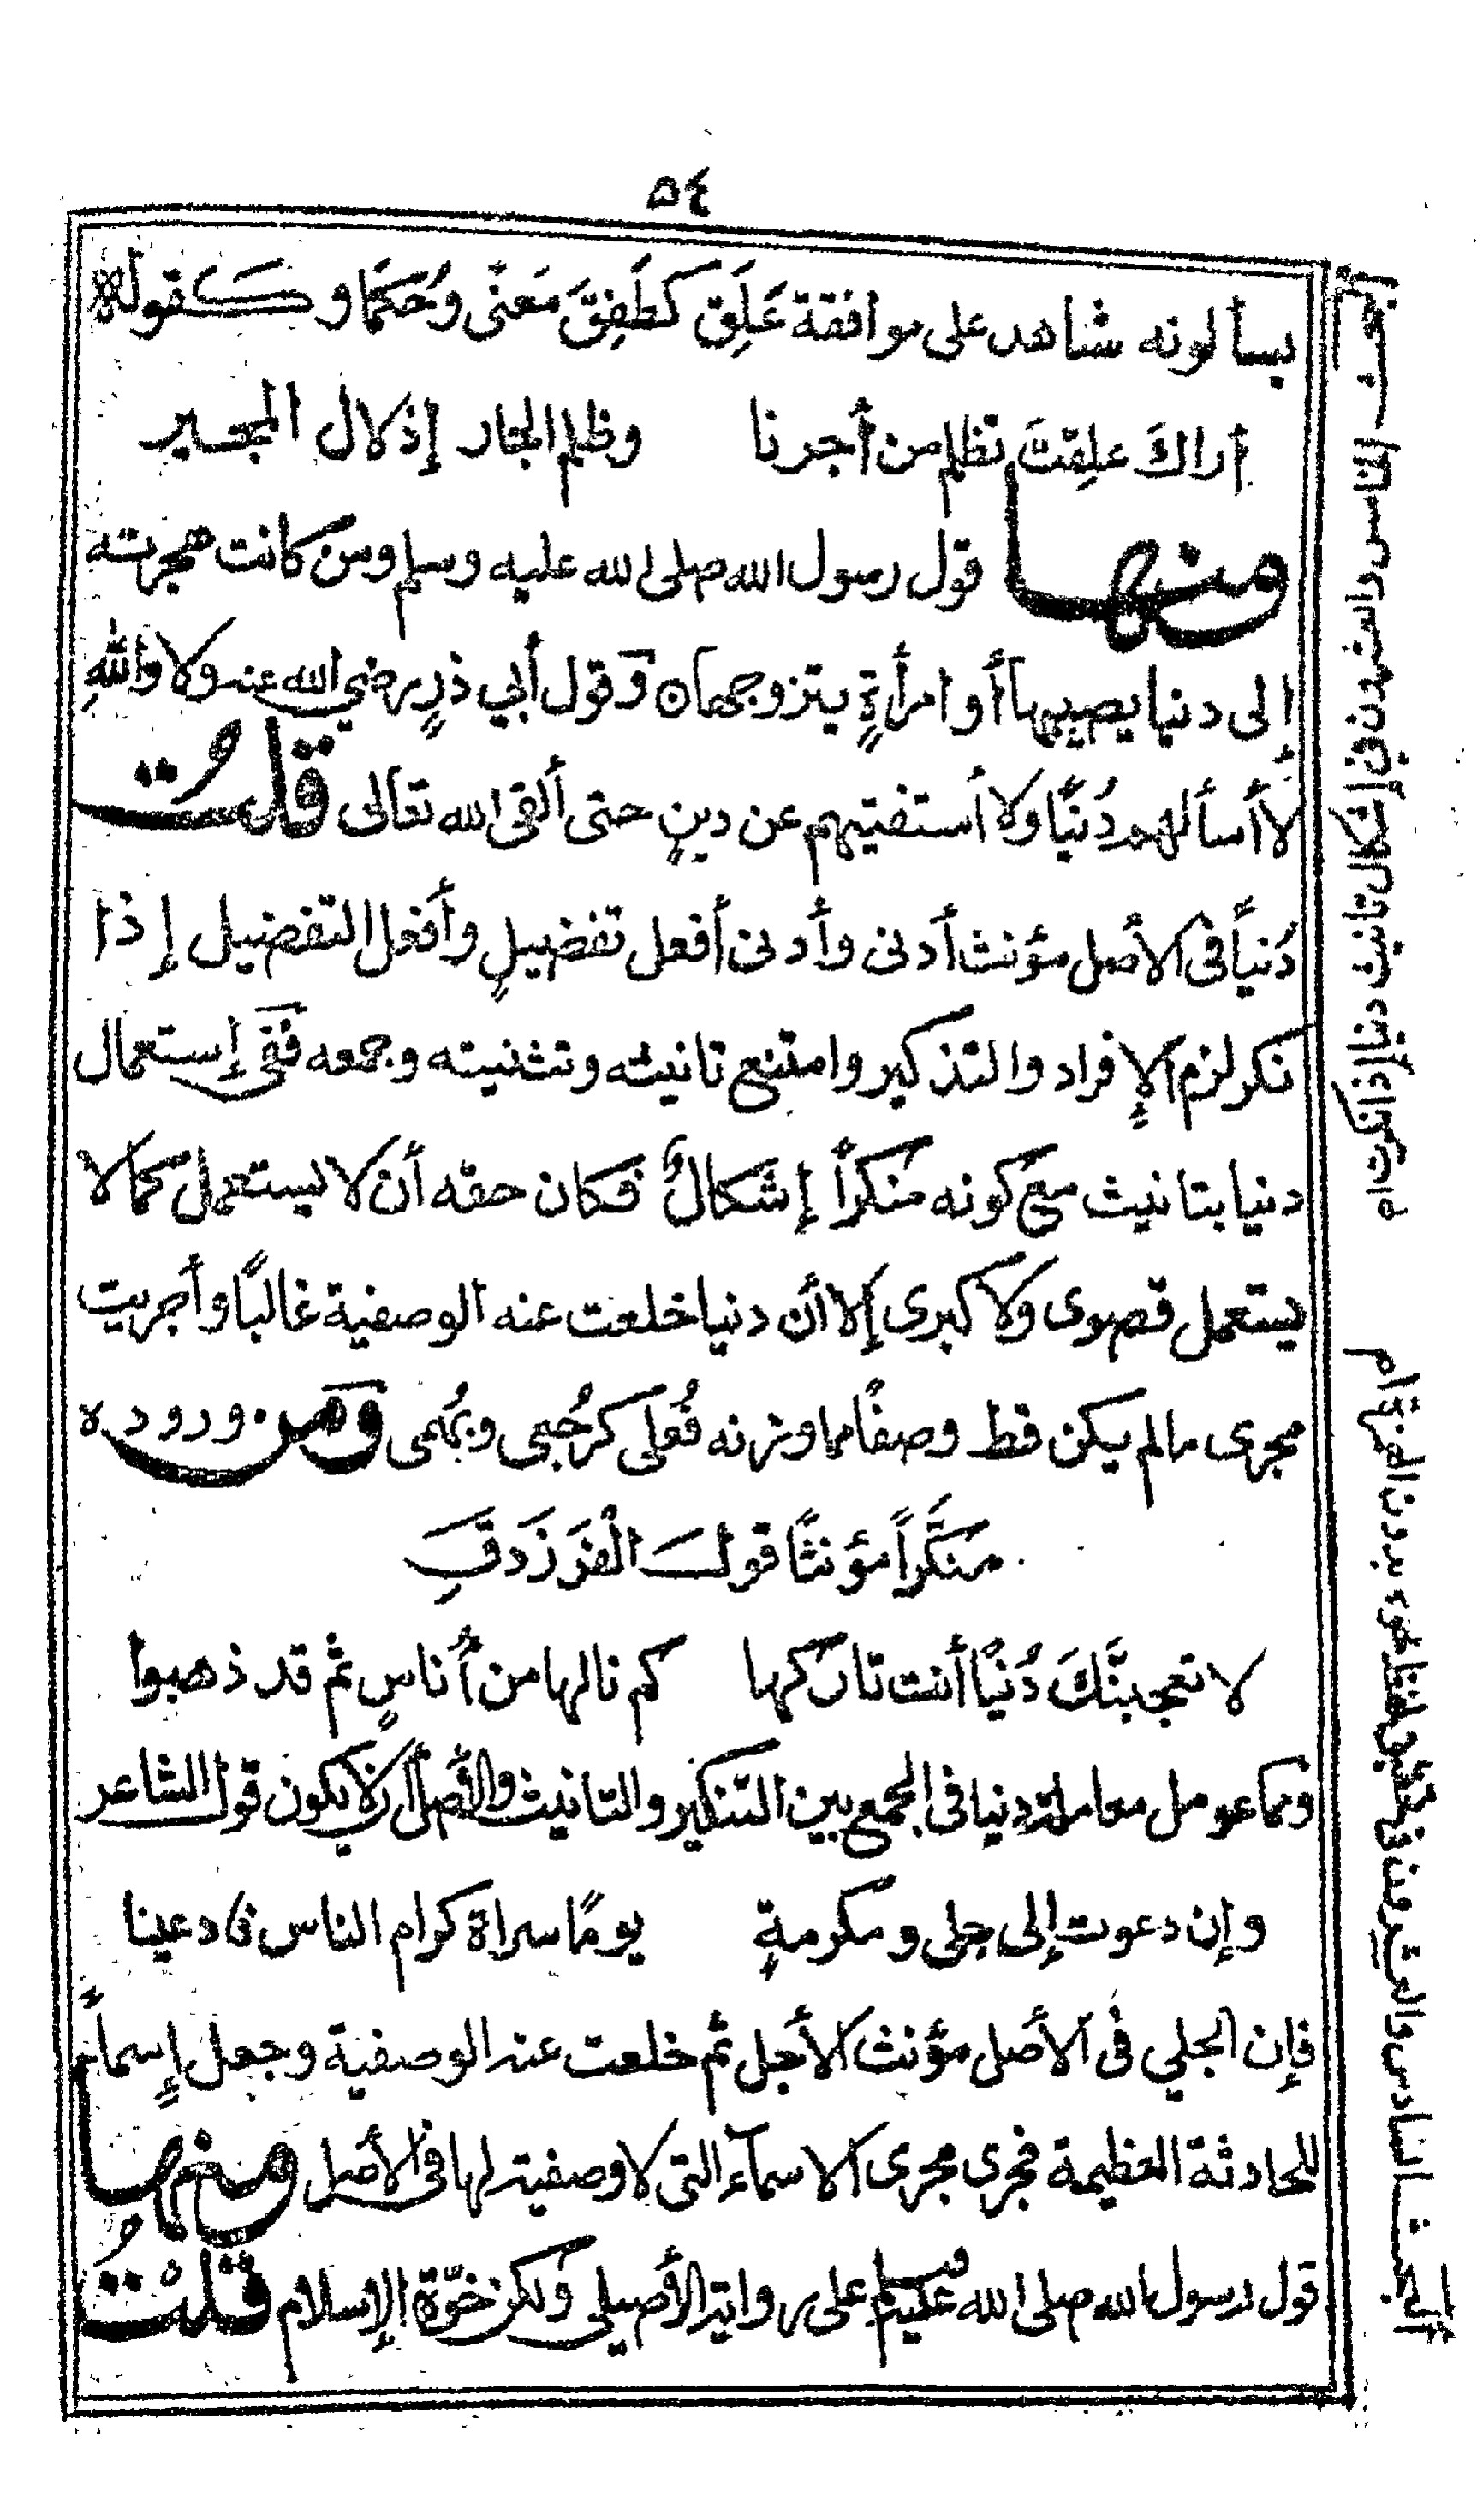 ٥٤
يسألونه شاهد على موافقة عَلِقَ كطَفِقَ مَعنًى وحُكمًا وكقوله
أراك علِقتَ تظلم من أجرنا وظلم الجار إذلال المجير
ومنها قول رسول الله صلى الله عليه وسلم ومن كانت هجرته
إلى دنيا يصيبها أو امرأةٍ يتزوجها ه وقول أبي ذرٍ رضي الله عنه ولا والله
لا أسألهم دُنيًا ولا أستفتيهم عن دينٍ حتى ألقى الله تعالى قلتُ
دُنياً في الأصل مؤنث أدنى وأدنى أفعل تفضيلٍ وأفعل التفضيل إذا
نكر لزم الإفراد والتذكير وامتنع تانيثه وتثنيته وجمعه ففي إستعمال
دنيا بتانيث مع كونه منكراً إشكالٌ فكان حقه أن لا يستعمل كما لا
يستعمل قصوى ولا كبرى إلا أن دنيا خلعت عنه الوصفية غالبًا وأجريت
مجرى ما لم يكن قط وصفًا مما وزنه فُعلى كرُجعى وبُهمى ومن وروده
منكَّراً مؤنثًا قول الفَرَزدَقِ
لا تعجبنَّكَ دُنيًا أنت تاركها كم نالها من أُناسٍ ثم قد ذهبوا
ومما عومل معاملة دنيا في الجمع بين التنكير والتانيث والأصل أن لا يكون قول الشاعر
وإن دعوت إلى جلى ومكرمةٍ يومًا سراة كرام الناس فادعينا
فإن الجلي في الأصل مؤنث الأجل ثم خلعت عنه الوصفية وجعل إسماً
للحادثة العظيمة فجرى مجرى الاسماء التي لا وصفية لها في الأصل ومنها
قول رسول الله صلى الله عليه وسلم على رواية الأصيلي ولكن خوّة الإسلام قلتُ